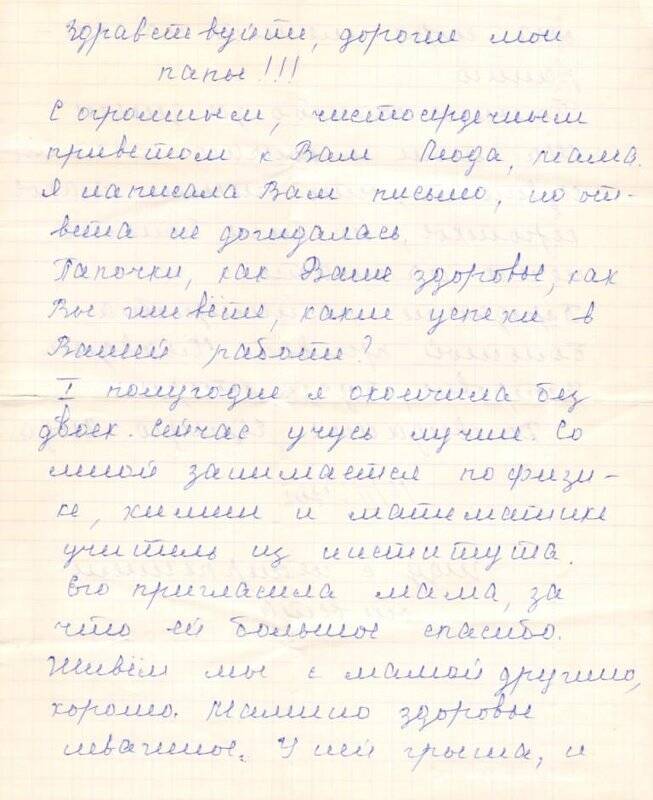 Здравствуйте, дорогие мои
папы!!!
С огромным, чистосердечным
приветом к Вам Люда, мама.
Я написала Вам письмо, но от-
вета не дождалась.
Папочки, как Ваше здоровье, как
Вы живёте, какие успехи в
Вашей работе?
I полугодие я окончила без
двоек. Сейчас учусь лучше. Со
мной занимается по физи-
ке, химии и математике
учитель из института.
Его пригласила мама, за
что ей большое спасибо.
Живём мы с мамой дружно,
хорошо. Мамино здоровье
неважное. У ней грыжа, и